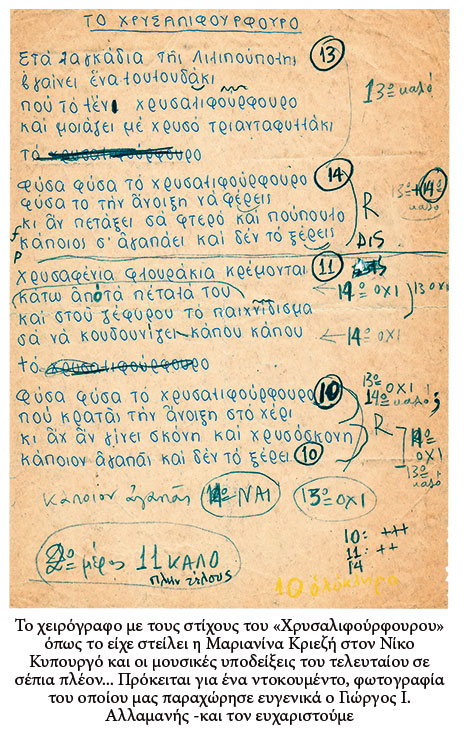 ΤΟ ΧΡΥΣΑΛΙΦΟΥΡΦΟΥΡΟ
Στὰ λαγκάδια τῆς Λιλιπούπολης
βγαίνει ἕνα λουλουδάκι
ποὺ τὸ λὲν χρυσαλιφούρφουρο
καὶ μοιάζει μὲ χρυσὸ τριανταφυλλάκι
τὸ χρυσαλιφούρφουρο
13
13º καλό
φύσα φύσα τὸ χρυσαλιφούρφουρο
φύσα το τὴν ἄνοιξη νὰ φέρεις
κι ἂν πετάξει σὰ φτερὸ καὶ πούπουλο
κάποιος σ' ἀγαπάει καὶ δὲν τὸ ξέρεις
14
13º + 14º
καλό
R
DIS
f
p
χρυσαφένια φλουράκια κρέμονται
κάτω ἀπ' τὰ πέταλά του
καὶ στοῦ ζέφυρου τὸ παιχνίδισμα
σὰ νὰ κουδουνίζει κάπου κάπου
τὸ χρυσαλιφούρφουρο
11
14º ΟΧΙ
13 ΟΧΙ
14º ΟΧΙ
φύσα φύσα τὸ χρυσαλιφούρφουρο
ποὺ κρατᾶι τὴν ἄνοιξη στὸ χέρι
κι ἂχ ἂν γίνει σκόνη καὶ χρυσόσκονη
κάποιον ἀγαπᾶι καὶ δὲν τὸ ξέρει
10
10
13º ΟΧΙ
14º καλό;
R
14º
ΟΧΙ
13º +
καλό
κάποιον ἀγαπᾶς
14º ΝΑΙ
13º ΟΧΙ
2º μέρος 11 ΚΑΛΟ
πλὴν τέλους
10: +++
11: ++
14
10 ὁλόκληρο
Το χειρόγραφο με τους στίχους του «Χρυσαλιφούρφουρου»
όπως το είχε στείλει η Μαριανίνα Κριεζή στον Νίκο
Κυπουργό και οι μουσικές υποδείξεις του τελευταίου σε
σέπια πλέον... Πρόκειται για ένα ντοκουμέντο, φωτογραφία
του οποίου μας παραχώρησε ευγενικά ο Γιώργος Ι.
Αλλαμανής -και τον ευχαριστούμε